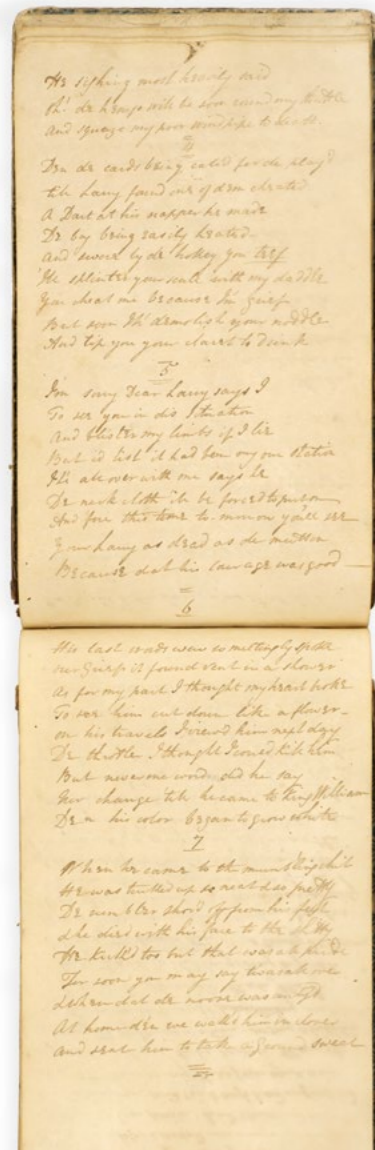 He sighing most heavily said
Oh! de hemps will be soon round my throttle
And squeage my poor windpipe to death
4
Den de cards being called for de play'd
till Larry found one of dem cheated
A Dart at his napper he made
De boy being easily heated
And swore by de hokey you teef
I'll splinter your scull with my daddle
You cheat me because I'm in greef
But soon I'll demolish your noddle
And tip you your claret to Drink
5
I'm sorry Dear Larry says I
To see you in dis situation
And blister my limbs if I lie
But id lish it had been my own station
Its all over with me says he
De neck cloth I'll be forced to put on
And fore this time to-morrow you'll see
Your Larry as dead as de mutton
Because dat his courage was good
6
His last words were so meltingly spoke
our greef it found vent in a shower
As for my part I thought my heart broke
To see him cut down like a flower
on his travels I viewed him next day
De throttle I thought I could kill him
But never one word did he say
Nor change till he came to King William
Den his color began to grow white
7
When he came to the numbling chit
He was tucked up so neat and so pretty
De rumbler shoved off from his feet
& he died with his face to the citty
He kick'd too but that was all pride
For soon you may say twas all over
& when dat de noose was untied
At home den we wak'd him in clover
And sent him to take a Ground Sweat